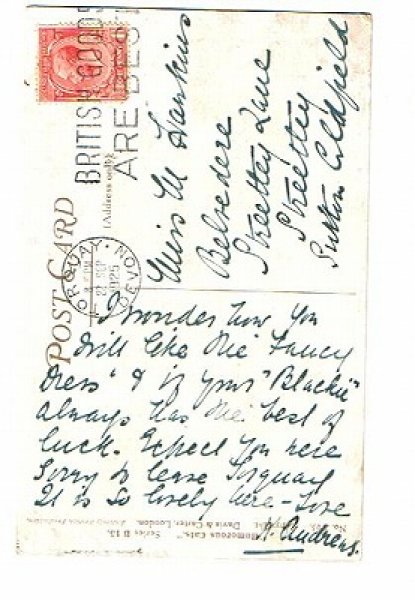 BRITISH GOODS
ARE BEST
POST CARD
(Address only)
TORQUAY
DEVON
PM
SEP
1925
Miss M Hawkins
Belvedere
Streetley Lane
Streetley
Sutton Coldfield
I wonder how you
will like the "Fancy
Dress" & if your "Blackie"
always has the best of
luck. Expect you were
Sorry to leave Torquay
It is so lovely here - Love
H. Andrews.
"Humorous Cats." Series B 13.
Davis & Carter, London.